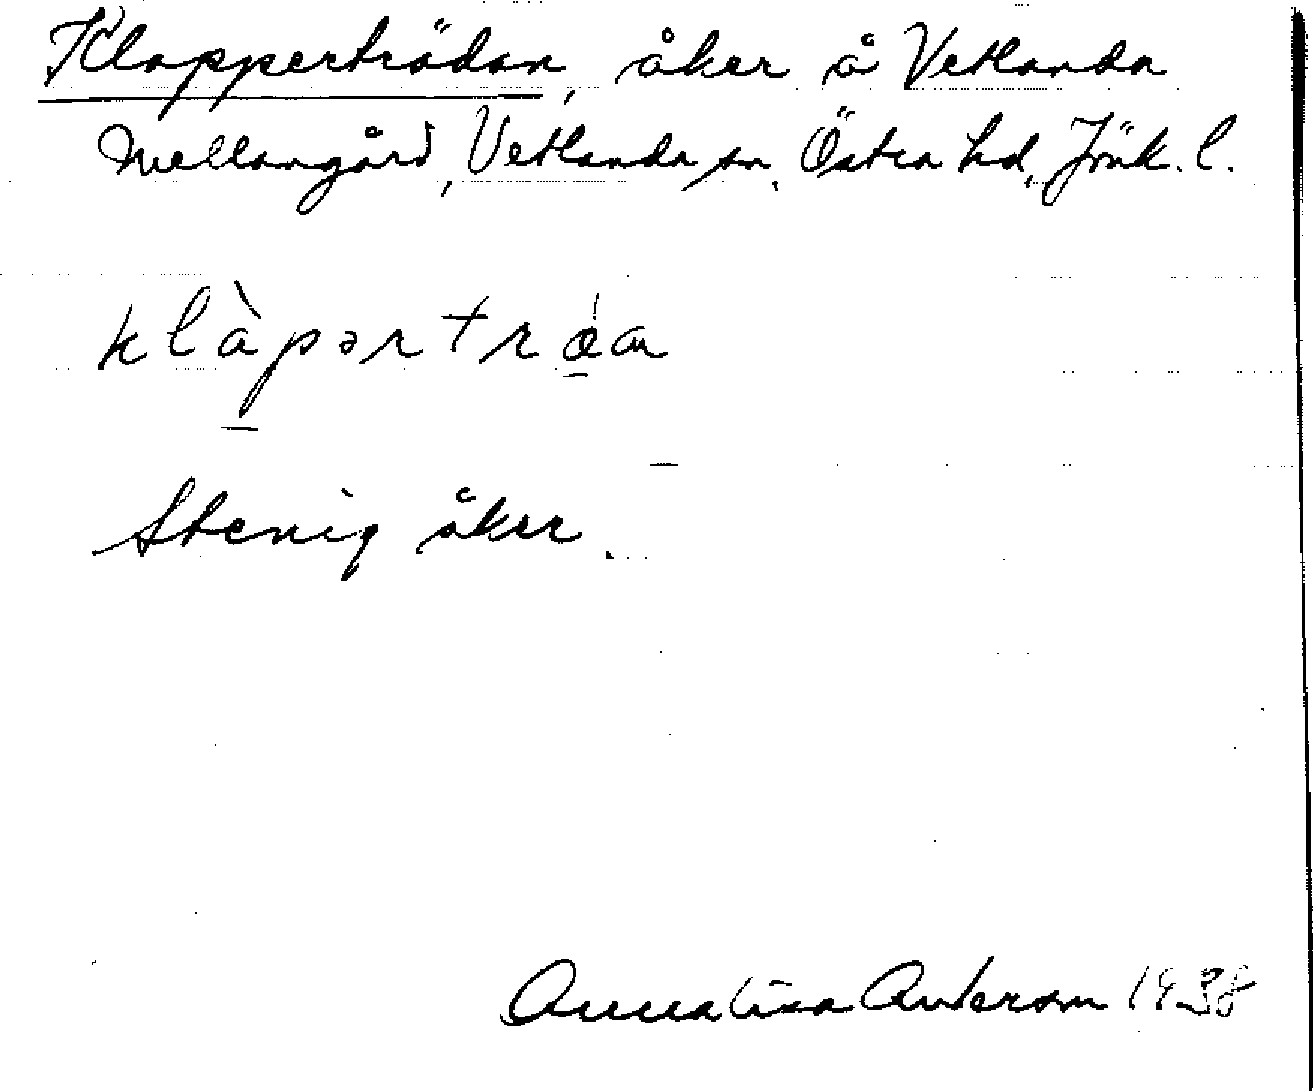 Klapperträdan, åker å Vetlanda
Mellangård, Vetlanda sn, Östra hd, Jönk. l.
klàpərtrøa
Stenig åker.
Annalisa Anderson 1938